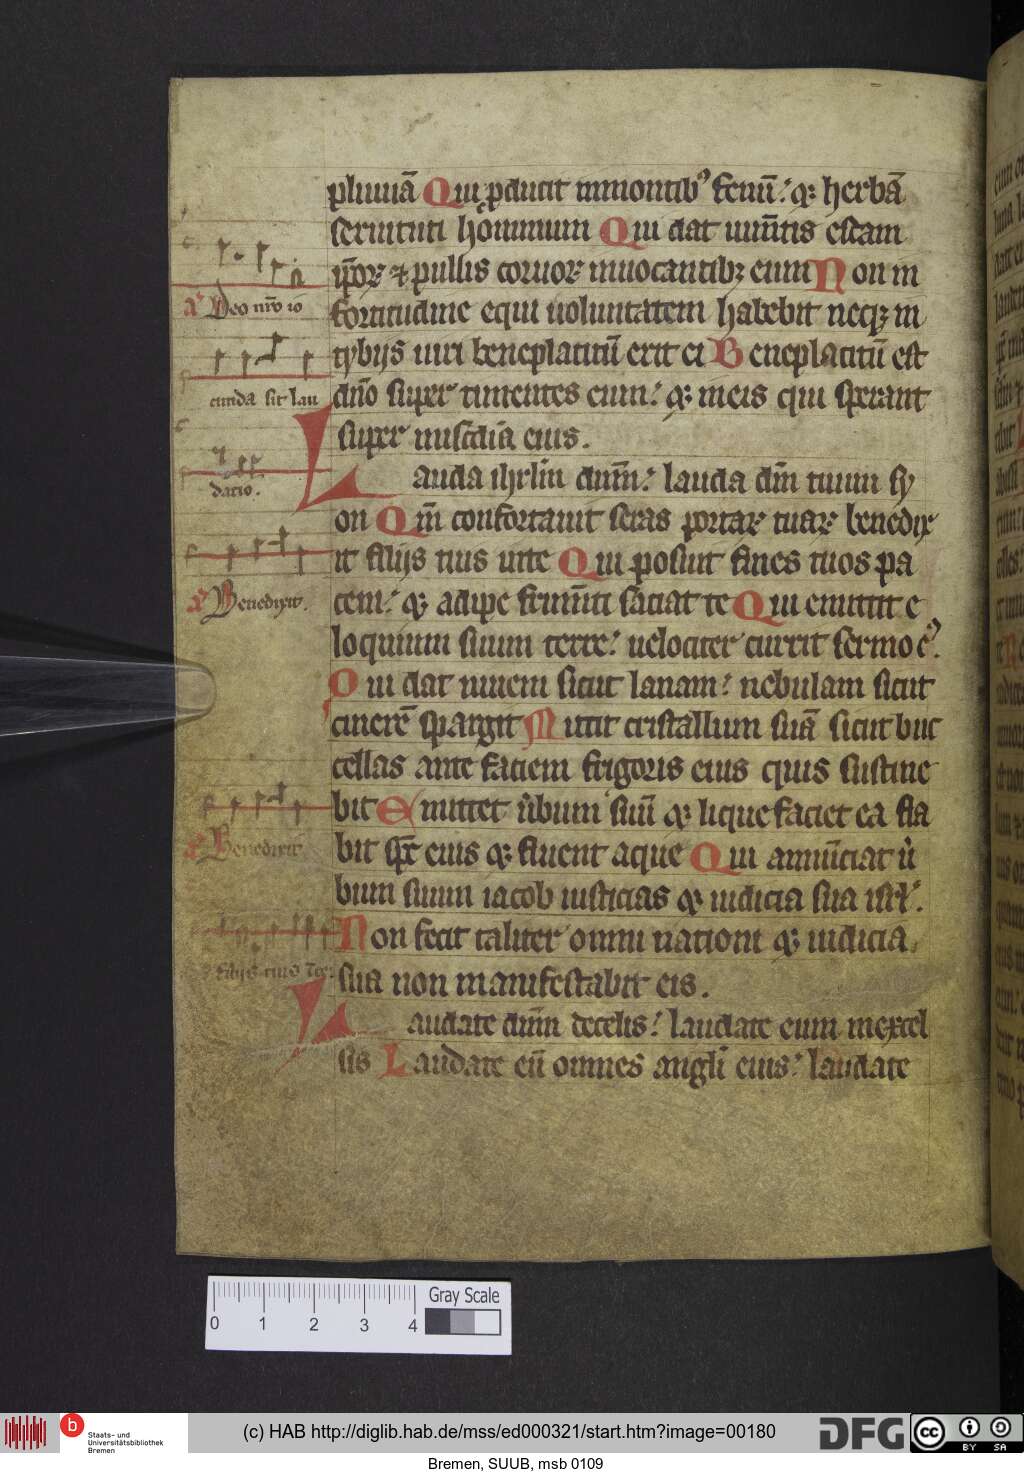 pluuiā Qui ꝓducit inmontibꝰ fenū: ⁊ herbā
seruituti hominum Qui dat iumētis escam
ip̄oꝝ ⁊ pullis coruoꝝ inuocantibꝫ eum Non in
fortitudine equi uoluntatem habebit neqꝫ in
tybijs uiri beneplacitū erit ei Beneplacitū est
dn̄o super timentes eum: ⁊ in eis qui sperant
super miscdīa eius.
Lauda ihrlm̄ dnm̄: lauda dm̄ tuum sy
on Qm̄ confortauit seras portaꝝ tuaꝝ benedix
it filijs tuis inte Qui posuit fines tuos pa
cem: ⁊ adipe frumēti saciat te Qui emittit e
loquium suum terre: uelociter currit sermo eꝰ.
Qui dat niuem sicut lanam: nebulam sicut
cinerē spargit Mittit cristallum suā sicut buc
cellas ante faciem frigoris eius quis sustine
bit Emittet ūbum suū ⁊ lique faciet ea fla
bit sp̄c eius ⁊ fluent aque Qui annūciat ū
bum suum iacob iusticias ⁊ iudicia sua isrl.
Non fecit taliter omni nationi ⁊ iudicia
sua non manifestabit eis.
Laudate dnm̄ decelis: laudate eum inexcel
sis Laudate eū omnes angli eius: laudate
a Deo nr̄o io
cunda sit lau
datio.
a Benedixit.
a Benedixit
filijs tuis
0 1 2 3 4
Gray Scale
b
Staats- und
Universitätsbibliothek
Bremen
(c) HAB http://diglib.hab.de/mss/ed000321/start.htm?image=00180
DFG
cc
BY SA
Bremen, SUUB, msb 0109